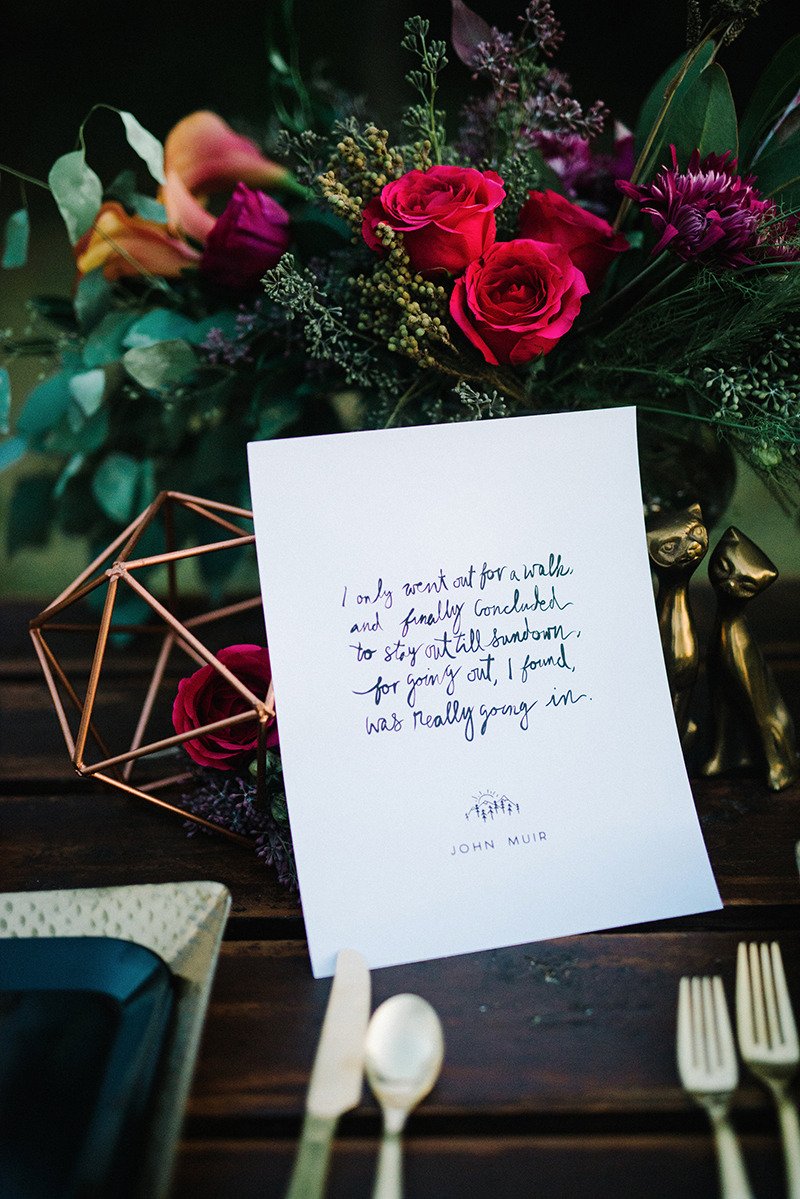 I only went out for a walk,
and finally concluded
to stay out till sundown,
for going out, I found,
was really going in.
JOHN MUIR